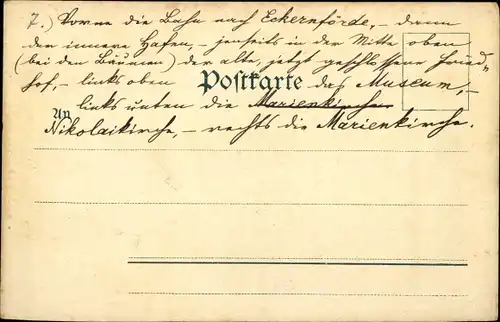 7.) Vorne die Bahn nach Eckernförde, – dann
der innere Hafen, – jenseits in der Mitte oben
(bei den Bäumen) der alte, jetzt geschlossene Fried=
hof, – links oben Postkarte das Museum, –
links unten die Marienkirche
An
Nikolaikirche, – rechts die Marienkirche.